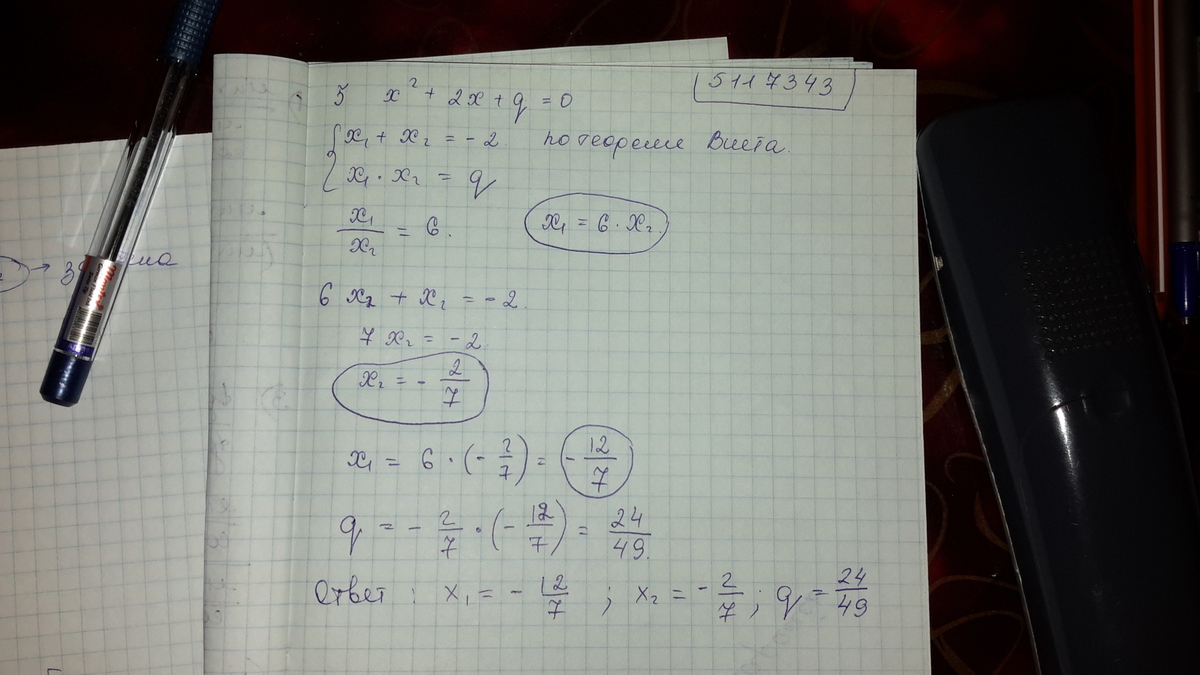 5 x² + 2x + q = 0
5117343
{ x₁ + x₂ = -2 по теореме Виета.
x₁ · x₂ = q
x₁/x₂ = 6. x₁ = 6 · x₂.
6 x₂ + x₂ = -2.
7 x₂ = -2.
x₂ = - 2/7
x₁ = 6 · (- 2/7) = - 12/7
q = - 2/7 · (- 12/7) = 24/49.
Ответ : x₁ = - 12/7 ; x₂ = - 2/7 ; q = 24/49